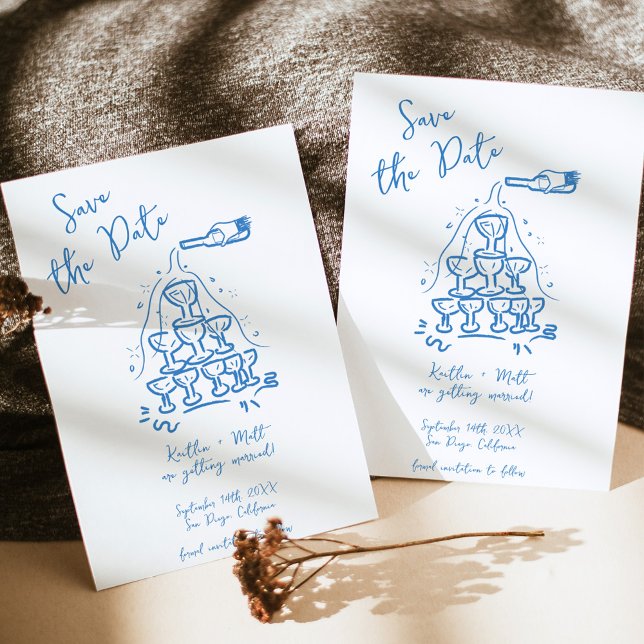 Save
the Date
Kaitlin + Matt
are getting married!
September 14th, 20XX
San Diego, California
formal invitation to follow
Save
the Date
Kaitlin + Matt
are getting married!
September 14th, 20XX
San Diego, California
formal invitation to follow